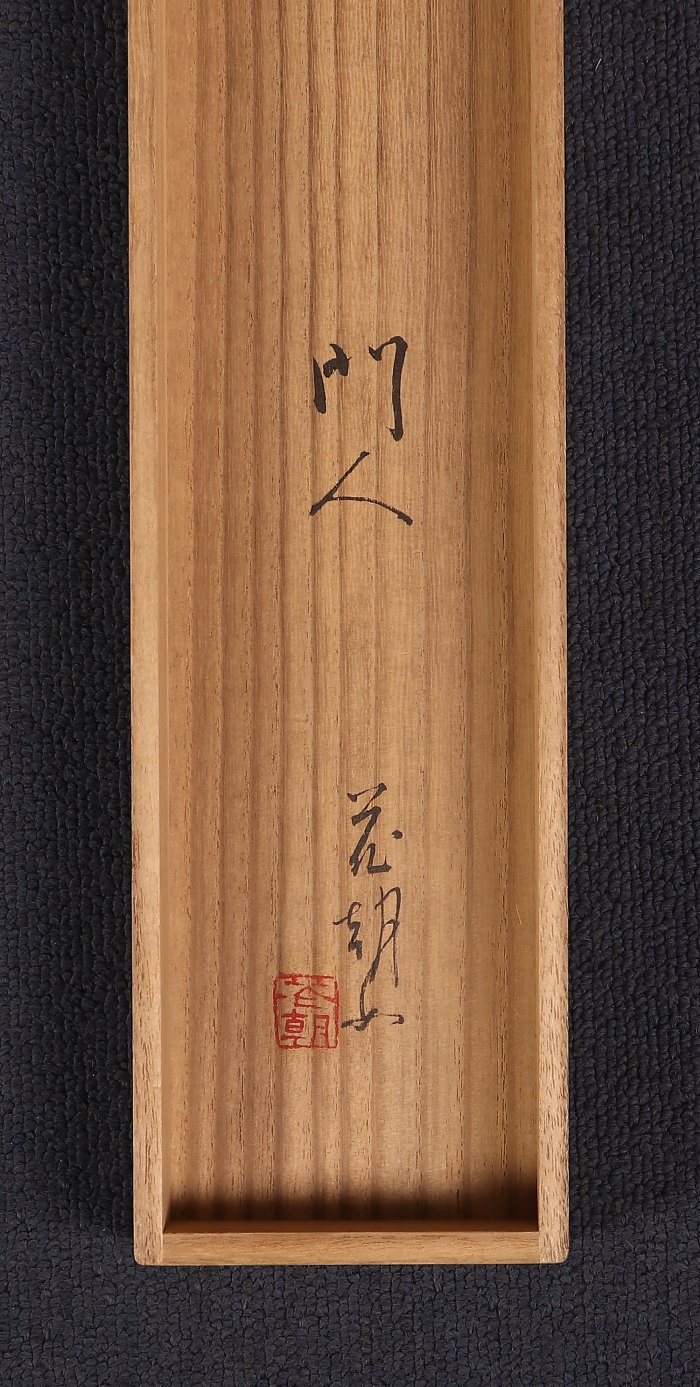 門人
花朝女
花朝